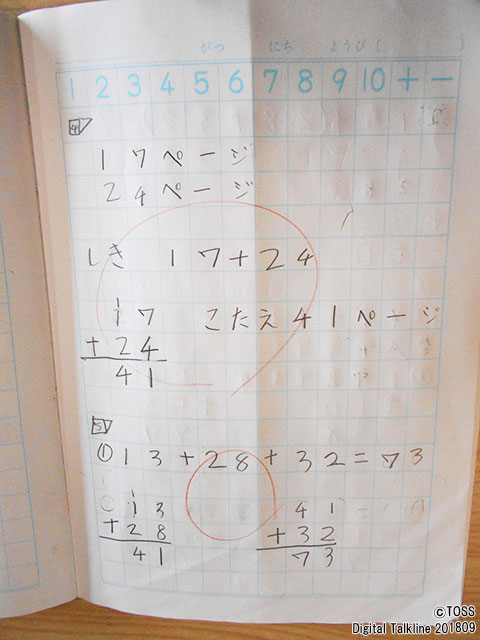 がつ にち ようび [ ]
1 2 3 4 5 6 7 8 9 10 + -
4
17ページ
24ページ
しき 17+24
1
17 こたえ41ページ
+24
41
5
①13+28+32=73
1
13 41
+28 +32
41 73
©TOSS
Digital Talkline 201809